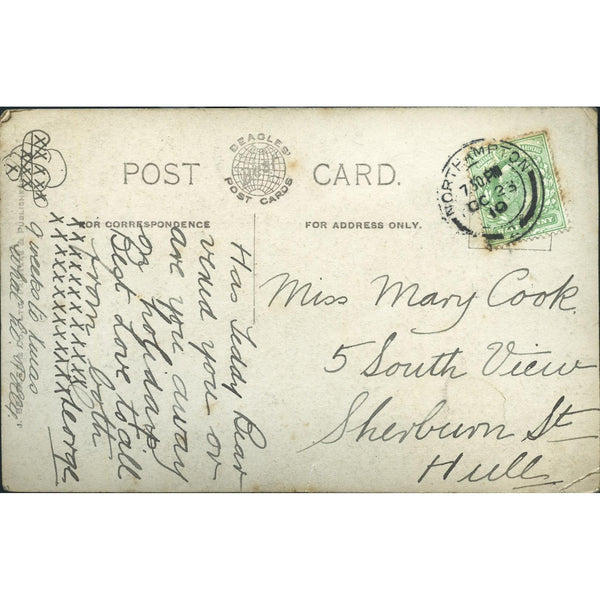 POST CARD.
BEAGLES'
POST CARDS
FOR CORRESPONDENCE
FOR ADDRESS ONLY.
NORTHAMPTON
7.30 PM
OC 23
10
HALFPENNY
Miss Mary Cook
5 South View
Sherburn St
Hull
Has Teddy Bear
vend you or
are you away
on holidays
Best Love to all
from both
xxxxxxxxxxx George
xxxxxxxxxxx
9 weeks to